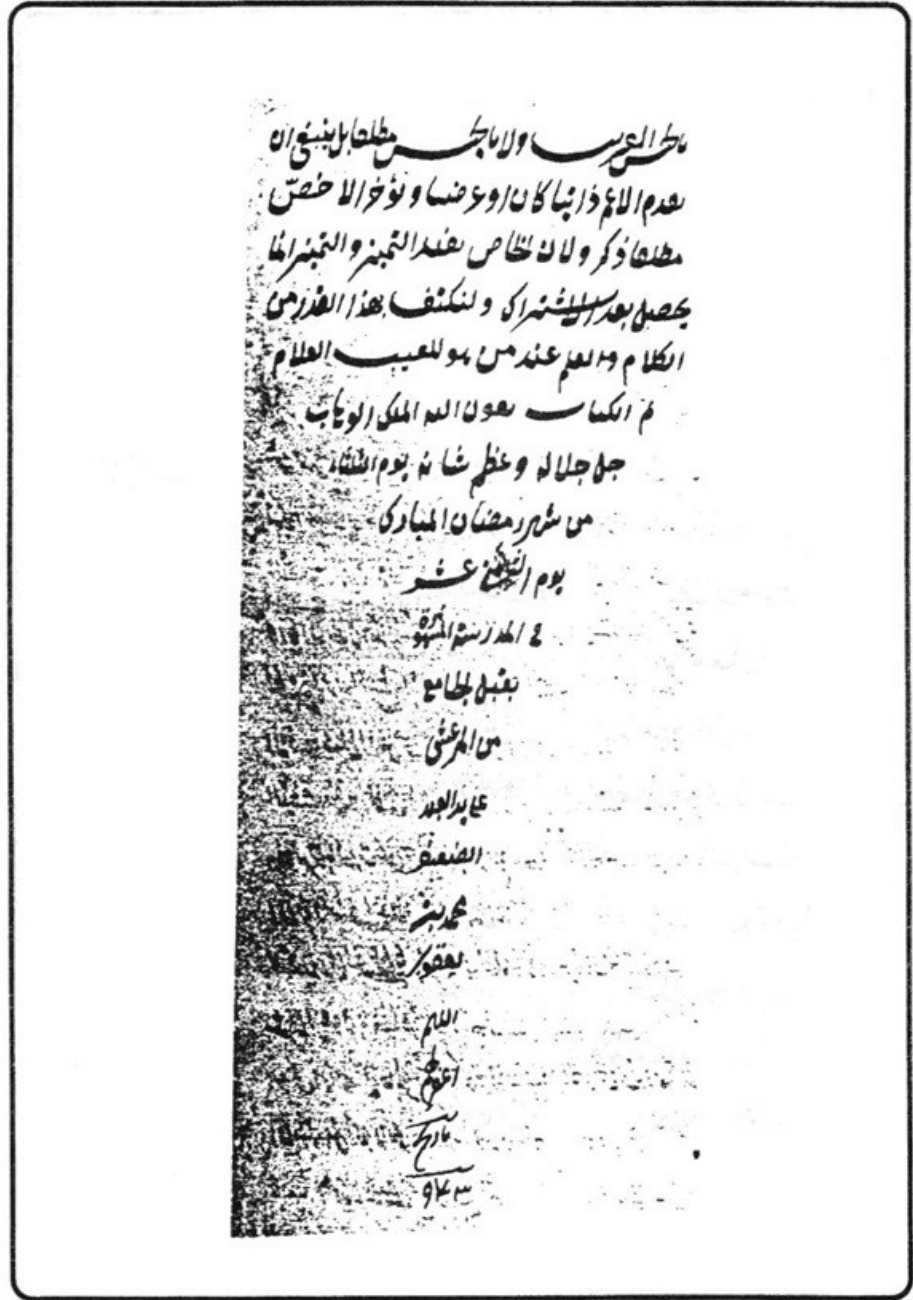 بالجنس القريب ولا بالجنس مطلقا بل ينبغي ان
يقدم الاعم ذاتيا كان او عرضيا ويؤخر الاخص
مطلقا ذكر ولان الخاص يفيد التميز والتميز انما
يحصل بعد الاشتراك ولنكتف بهذا القدر من
الكلام والعلم عند من هو للغيب العلام
تم الكتاب بعون الله الملك الوهاب
جل جلاله وعظم شانه يوم الثلثاء
من شهر رمضان المبارك
يوم عشر
في المدرسة المشهورة
الجامع
من المرعشي
العبد
الضعيف
محمد بن
يعقوب
اللهم
اغفر
تاريخ
٩٤٣